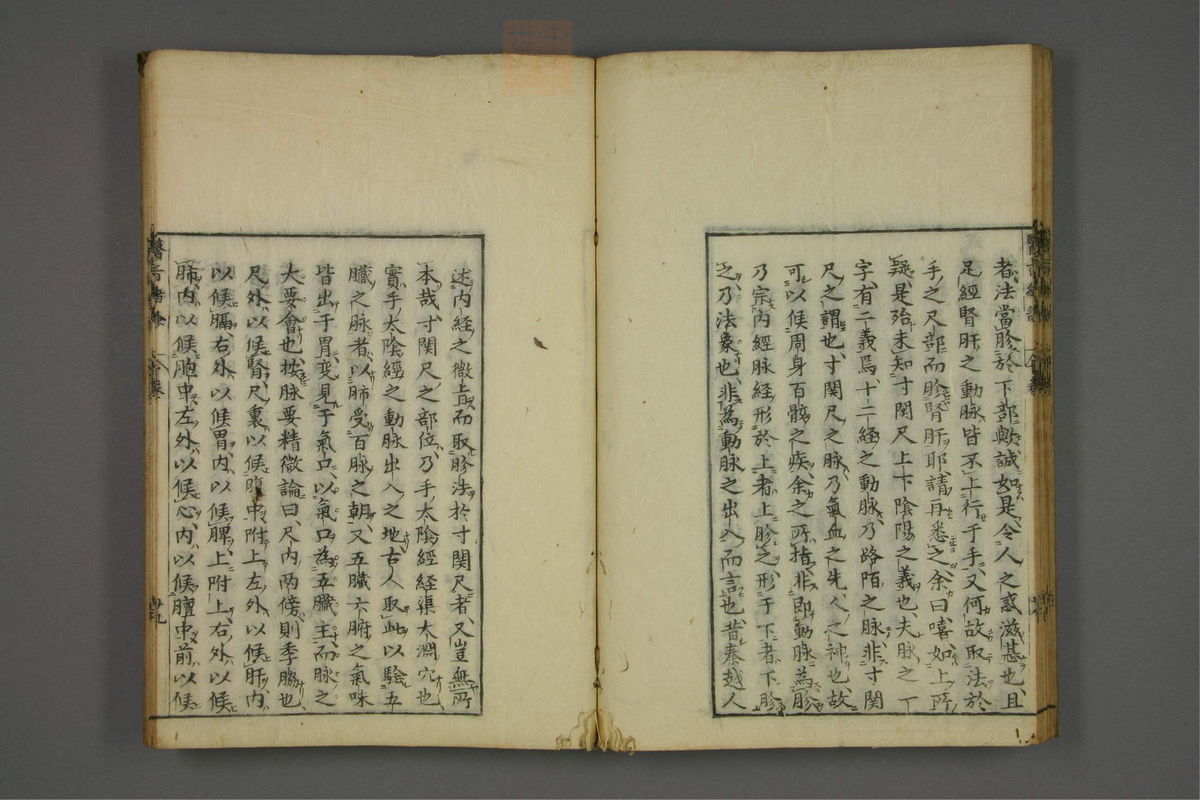 者法當胗於下部歟誠如是令人之惑滋甚也且
足經腎肝之動脉皆不上行于手又何故取法於
手之尺部而胗腎肝耶請再悉之余曰嘻如上所
疑是殆未知寸関尺上下陰陽之義也夫脉之一
字有二義焉十二経之動脉乃路陌之脉非寸関
尺之謂也寸関尺之脉乃氣血之先人之神也故
可以候周身百骸之疾余之所指非即動脉為胗
乃宗内經脉経形於上者上胗之形于下者下胗
之乃法象也非為動脉之出入而言也昔秦越人
述内経之微旨而取胗法於寸関尺者又豈無所
本哉寸関尺之部位乃手太陰經経渠太淵穴也
實手太陰經之動脉出入之地古人取此以驗五
臓之脉者以肺受百脉之朝又五臓六腑之氣味
皆出于胃变見于氣口以氣口為五臓主而脉之
大要會也按脉要精微論曰尺内両傍則季脇也
尺外以候腎尺裏以候腹中附上左外以候肝内
以候膈右外以候胃内以候脾上附上右外以候
肺内以候胸中左外以候心内以候膻中前以候